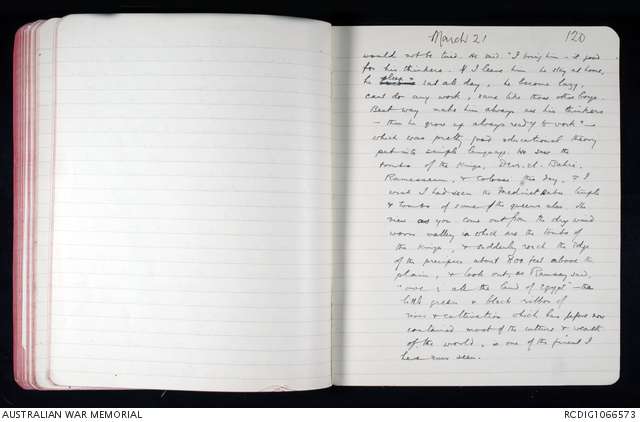 March 21
120
would not be tired. He said "I bring him - it good
for his thinkers. If I leave him he stay at home,
he sleep eat all day, he become lazy,
cant do any work, same like those other boys.
Best way make him always use his thinkers
- then he grow up always ready to work" -
which was pretty good educational theory
put into simple language. We saw the
tombs of the Kings, Deir-el-Bahri,
Ramesseum, & Colossi this day, & I
wish I had seen the Medinet Habu temple
& tombs of some of the queens also. The
view as you come out from the dry wind
worn valley in which are the tombs of
the Kings, & suddenly reach the edge
of the precipice about 800 feet above the
plain, & look out, as Ramsay said,
"over all the land of Egypt" - the
little green & black ribbon of
river & cultivation which has before now
contained most of the culture & wealth
of the world, is one of the finest I
have ever seen.
AUSTRALIAN WAR MEMORIAL
RCDIG1066573